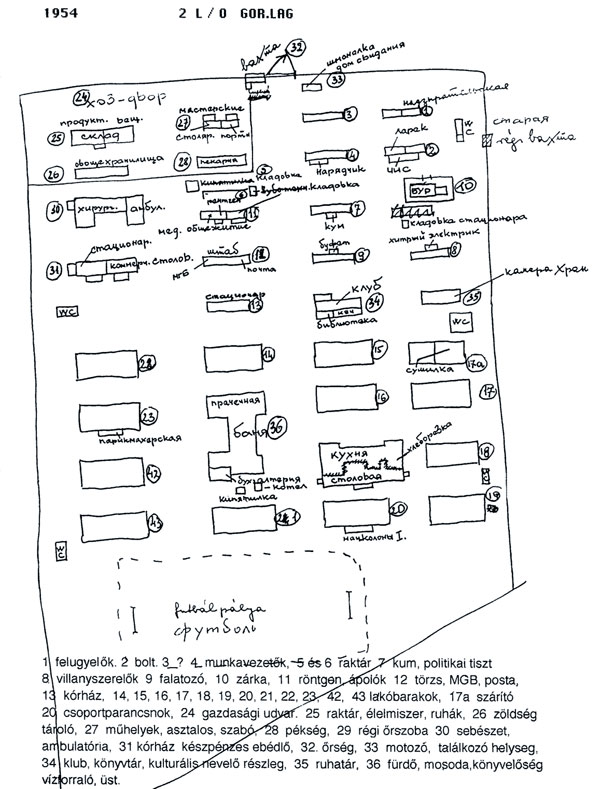 1954 2 L/O GOR.LAG
вахта 32
шмоналка
дом свидания
33
24 хоз-двор
продукт. вещ.
25 склад
26 овощехранилища
мастерские
27
столяр. портн.
28 пекарня
3
надзирательская
1
WC
старая
régi вахта
ларек
2
чис
4
нарядчик
БУР 10
5
кипятилка кладовка
6
рентген
11
мед. общежитие
30 хирург. амбул.
7
кум
кладовка стационара
хитрый электрик
8
стационар.
31 коммерч. столов.
штаб 12
МГБ почта
буфет
9
камера хран
35
WC
стационар
13
клуб
34
КВЧ
библиотека
WC
22
14
15
сушилка
17a
23
парикмахерская
прачечная
баня 36
16
17
бухгалтерия
котел
кипятилка
кухня
столовая
хлеборезка
18
WC
42
43
21
20
нач колоны I.
19
WC
futbálpálya
футболь
1 felugyelők. 2 bolt. 3_? 4 munkavezetők, 5 és 6 raktár 7 kum, politikai tiszt
8 villanyszerelők 9 falatozó, 10 zárka, 11 röntgen ápolók 12 törzs, MGB, posta,
13 kórház, 14, 15, 16, 17, 18, 19, 20, 21, 22, 23, 42, 43 lakóbarakok, 17a szárító
20 csoportparancsnok, 24 gazdasági udvar. 25 raktár, élelmiszer, ruhák, 26 zöldség
tároló, 27 műhelyek, asztalos, szabó, 28 pékség, 29 régi őrszoba 30 sebészet,
ambulatória, 31 kórház készpénzes ebédlő, 32. őrség, 33 motozó, találkozó helyseg,
34 klub, könyvtár, kulturális nevelő részleg, 35 ruhatár, 36 fürdő, mosoda,könyvelőség
vízforraló, üst.